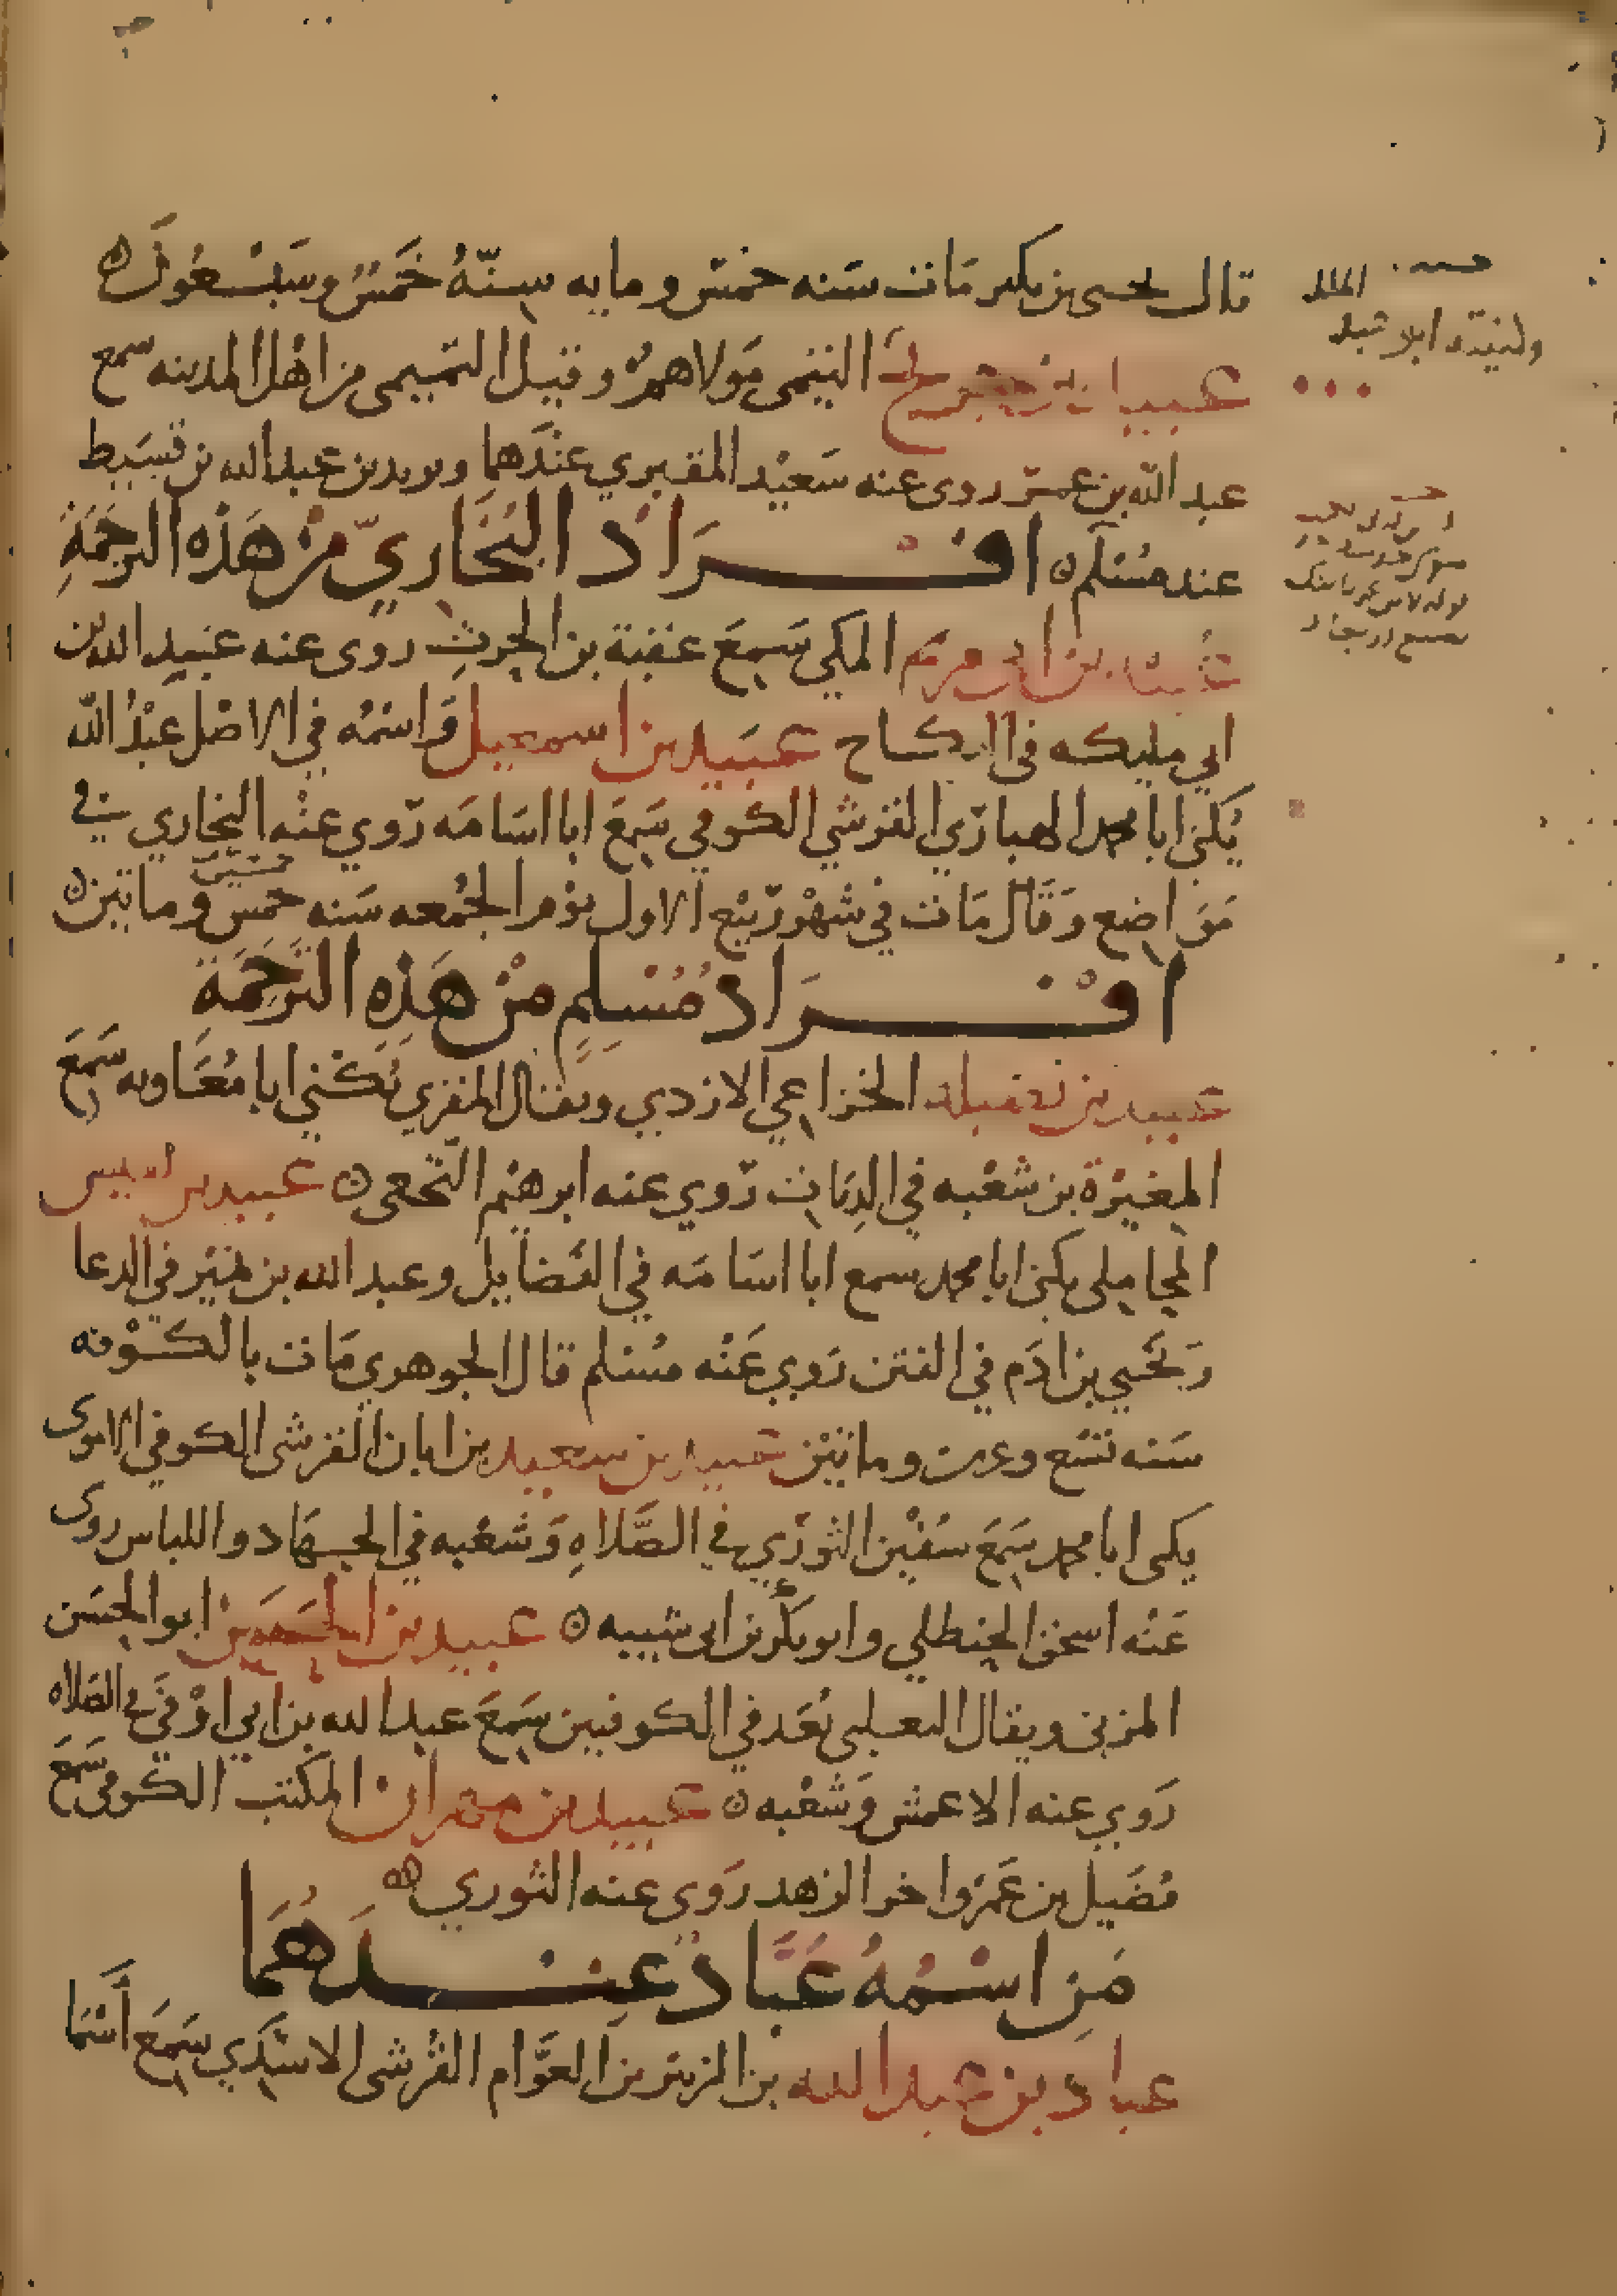 قال يحيى بن بكير مات سنه خمس ومايه سنّهُ خَمسٌ وسَبْعُونَ
عبيد بن جريج التيمى مَولاهم وقيل التميمى من اهل المدينه سمع
عبد الله بن عمر روى عنه سَعيْد المقبري عندَهما ويزيد بن عبد الله بن قسَيط
عند مسْلم افْرَاد البُخَاريّ مِنْ هَذه الترجَمَةِ
عبيد بن ابى مريم المكي سَمعَ عقبة بن الحرثِ روى عنه عبَيد الله بن
ابي مليكه في النكاح عبَيد بن اسمعيل وَاسْمُه في الاصْل عبْدُ الله
يُكنى ابا محمد الهباري القرشي الكوفي سَمعَ ابا اسَامَه رَوي عنْه البخاري في
مَوَاضع وَقَال مَات في شهْر ربيْع الاول يوْم الجُمعه سَنه خمس ومائتين
خمسين
افْرَاد مُسْلِمٍ مِنْ هَذِهِ التَرجَمَة
عبيد بن نضيله الخزاعي الازدي ويقال المقري يُكْني ابا مُعَاويه سَمعَ
المغيْرة بن شعْبه في الدِيَات رَوي عنه ابرهيْم النّخعى عبيد بن يعيش
المحاملى يكنى ابا محمد سمع ابا اسَامَه في الفَضايل وعبد الله بن نميْر في الدعا
وَيَحْيي بن ادَم في الفتن رَوي عَنْه مسْلم قال الجوهري مَات بالكوْفه
سَنه تسْع وعرين ومائتيْن عبيد بن سعيد بن ابان القرشى الكوفي الاموى
يكى ابا محمد سَمعَ سُفْيْن الثوري في الصَّلاهِ وَشعْبه في الجهَاد واللباس روى
عَنْه اسحق الحنظلي وابو بَكر بن ابى شيبه عبيد بن الحسَن ابو الحسَن
المزنى ويقال الثعلبى يُعَد في الكوفيين سَمعَ عبد الله بن ابي اوْفي في الصَلاه
رَوي عنه الاعمش وَشعْبه عبيد بن مهران المكتب الكوفى سَمعَ
فضَيل بن عَمرْو اخر الزهد رَوى عنه الثوري
مَنِ اسْمُهُ عَبَّاد عِنْدَهُمَا
عباد بن عبد الله بن الزبيْر بن العوَّام القُرشى الاسَدي سَمعَ أَسْمَا